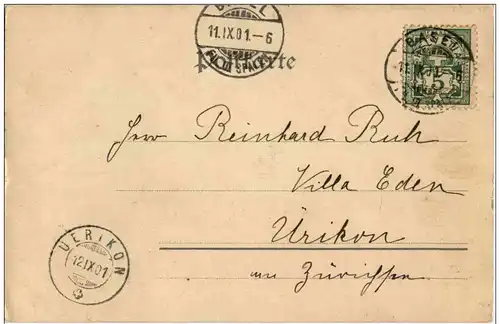 BASEL
11.IX.01.–6
Postkarte
BASEL
5
Herr Reinhard Ruh
Villa Eden
Ürikon
am Zürichsee
UERIKON
12.IX.01